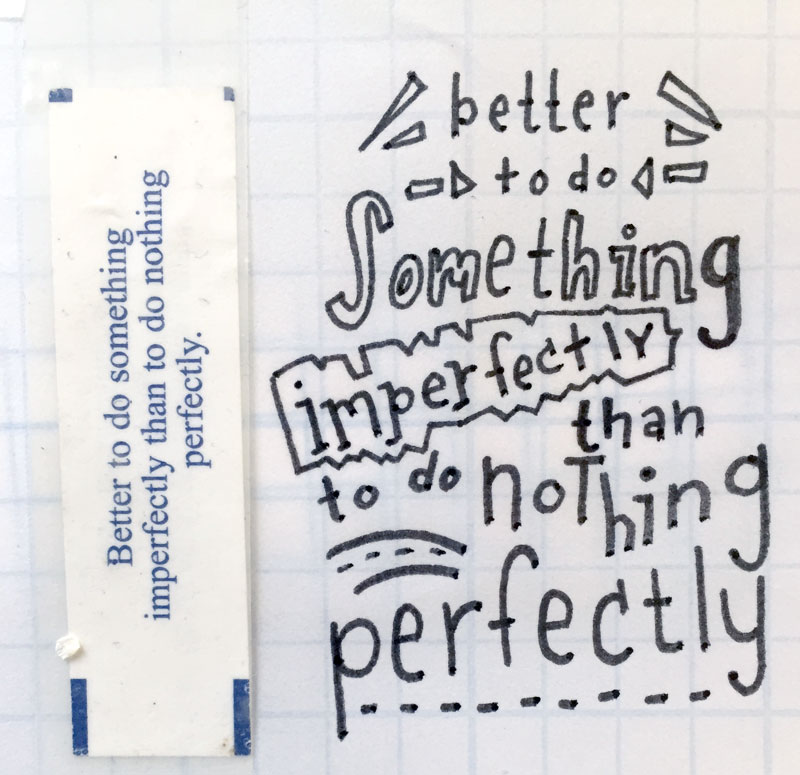 Better to do something
imperfectly than to do nothing
perfectly.
better
to do
Something
imperfectly
than
to do nothing
perfectly